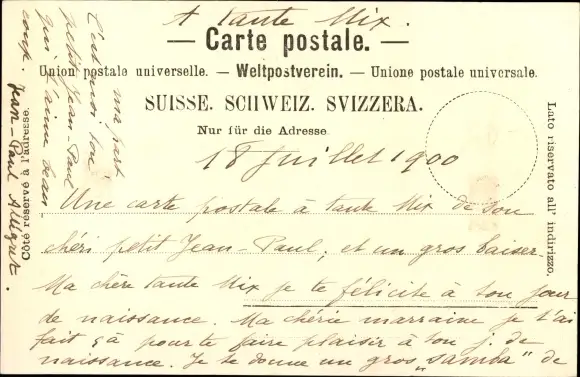 A tante Mix.
— Carte postale. —
Union postale universelle. — Weltpostverein. — Unione postale universale.
SUISSE. SCHWEIZ. SVIZZERA.
Nur für die Adresse
18 Juillet 1900
Une carte postale à tante Mix de son
chéri petit Jean-Paul, et un gros baiser.
Ma chère tante Mix je te félicite à ton jour
de naissance. Ma chérie marraine je t'ai
fait çà pour te faire plaisir à ton j. de
naissance. Je te donne un gros „samba" de
ma part
C'est moi ton
petit Jean-Paul
qui t'aime beau
coup.
Jean-Paul
Côté réservé à l'adresse.
Lato riservato all' indirizzo.